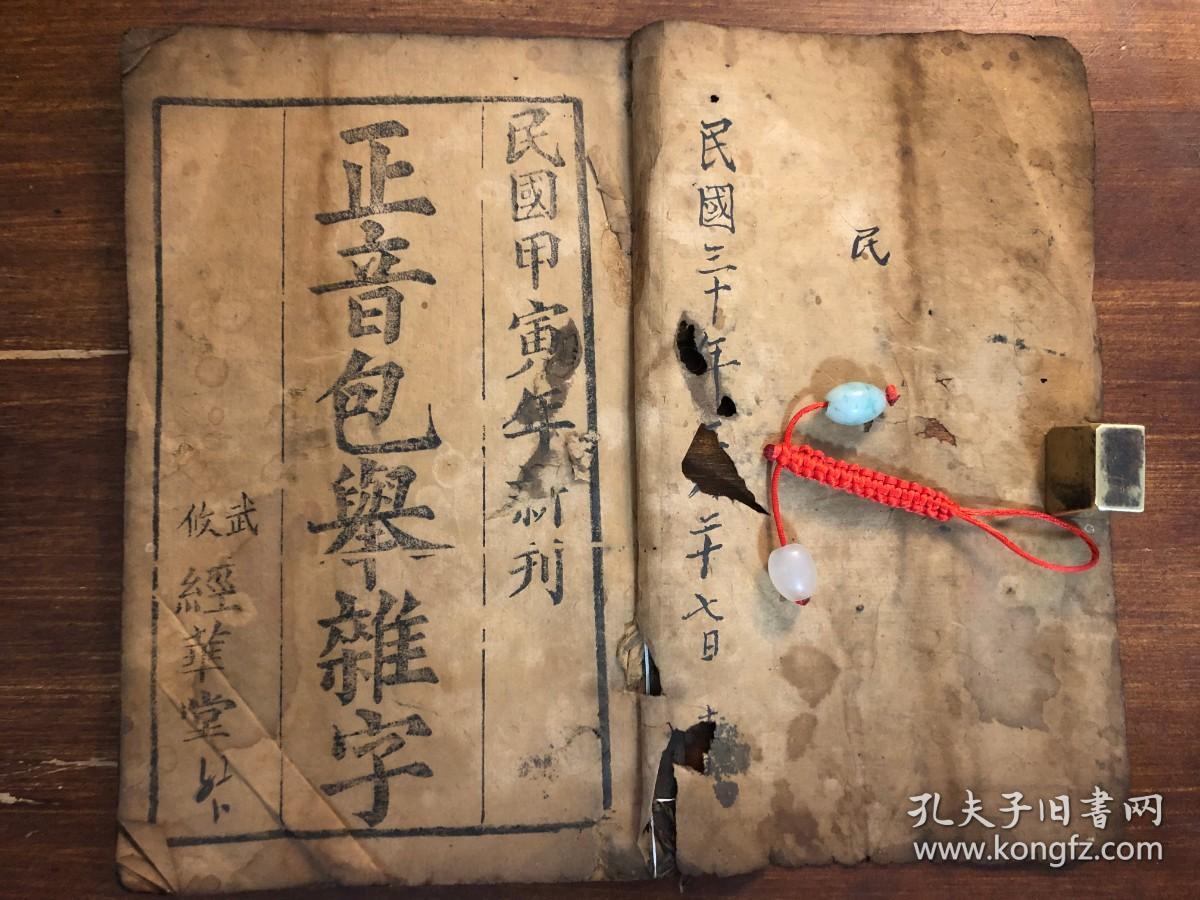 民
民國三十年
二十七日
民國甲寅年新刊
正音包舉雜字
武攸
經華堂
孔夫子旧書网
www.kongfz.com